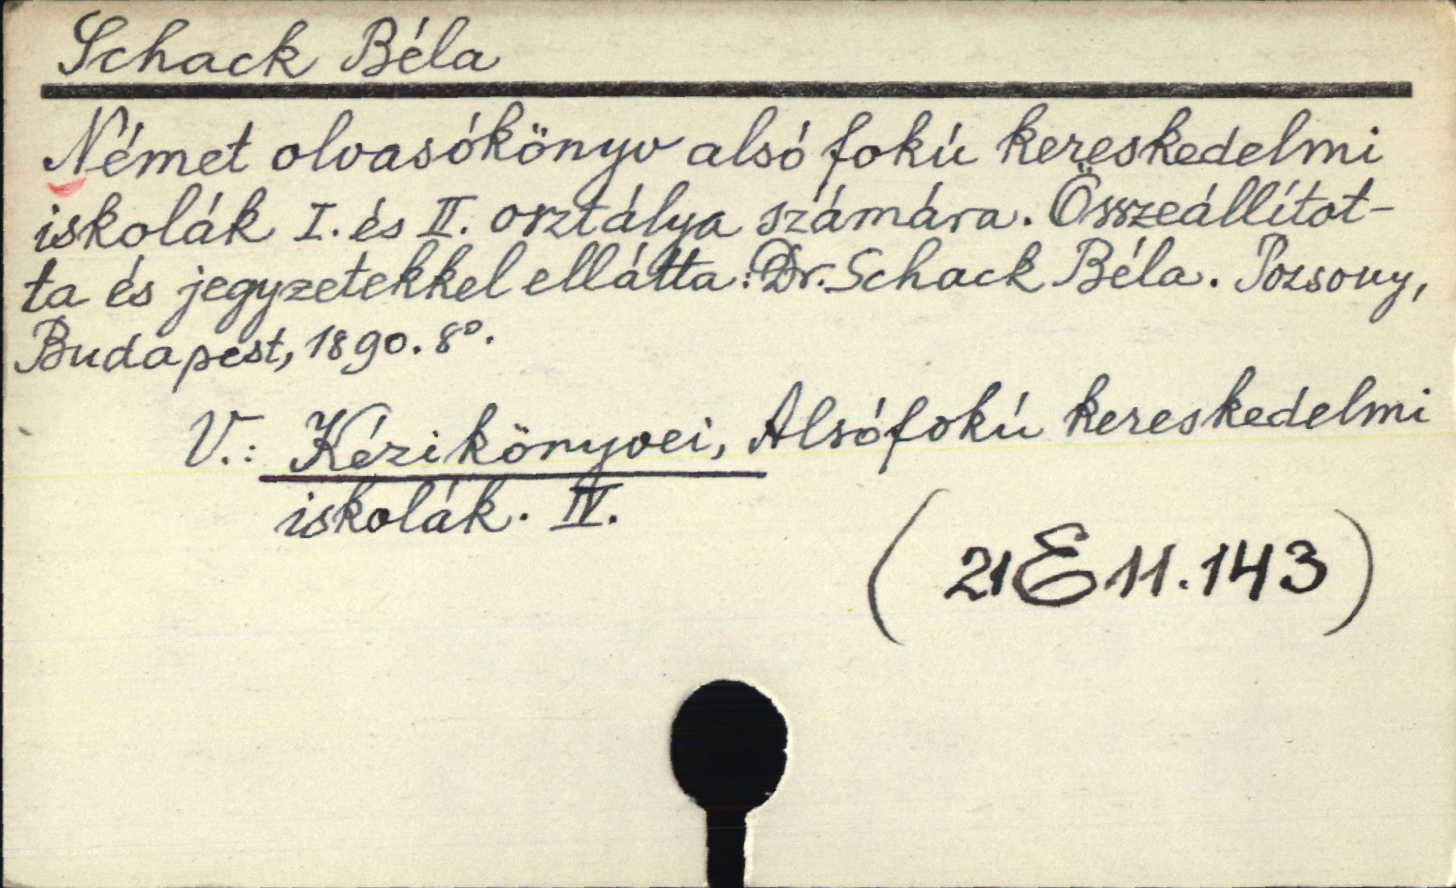 Schack Béla
Német olvasókönyv alsó fokú kereskedelmi
iskolák I. és II. osztálya számára. Összeállítot-
ta és jegyzetekkel ellátta: Dr. Schack Béla. Pozsony,
Budapest, 1890. 8°.
V.: Kézikönyvei, Alsófokú kereskedelmi
iskolák. IV.
(21 E 11.143)